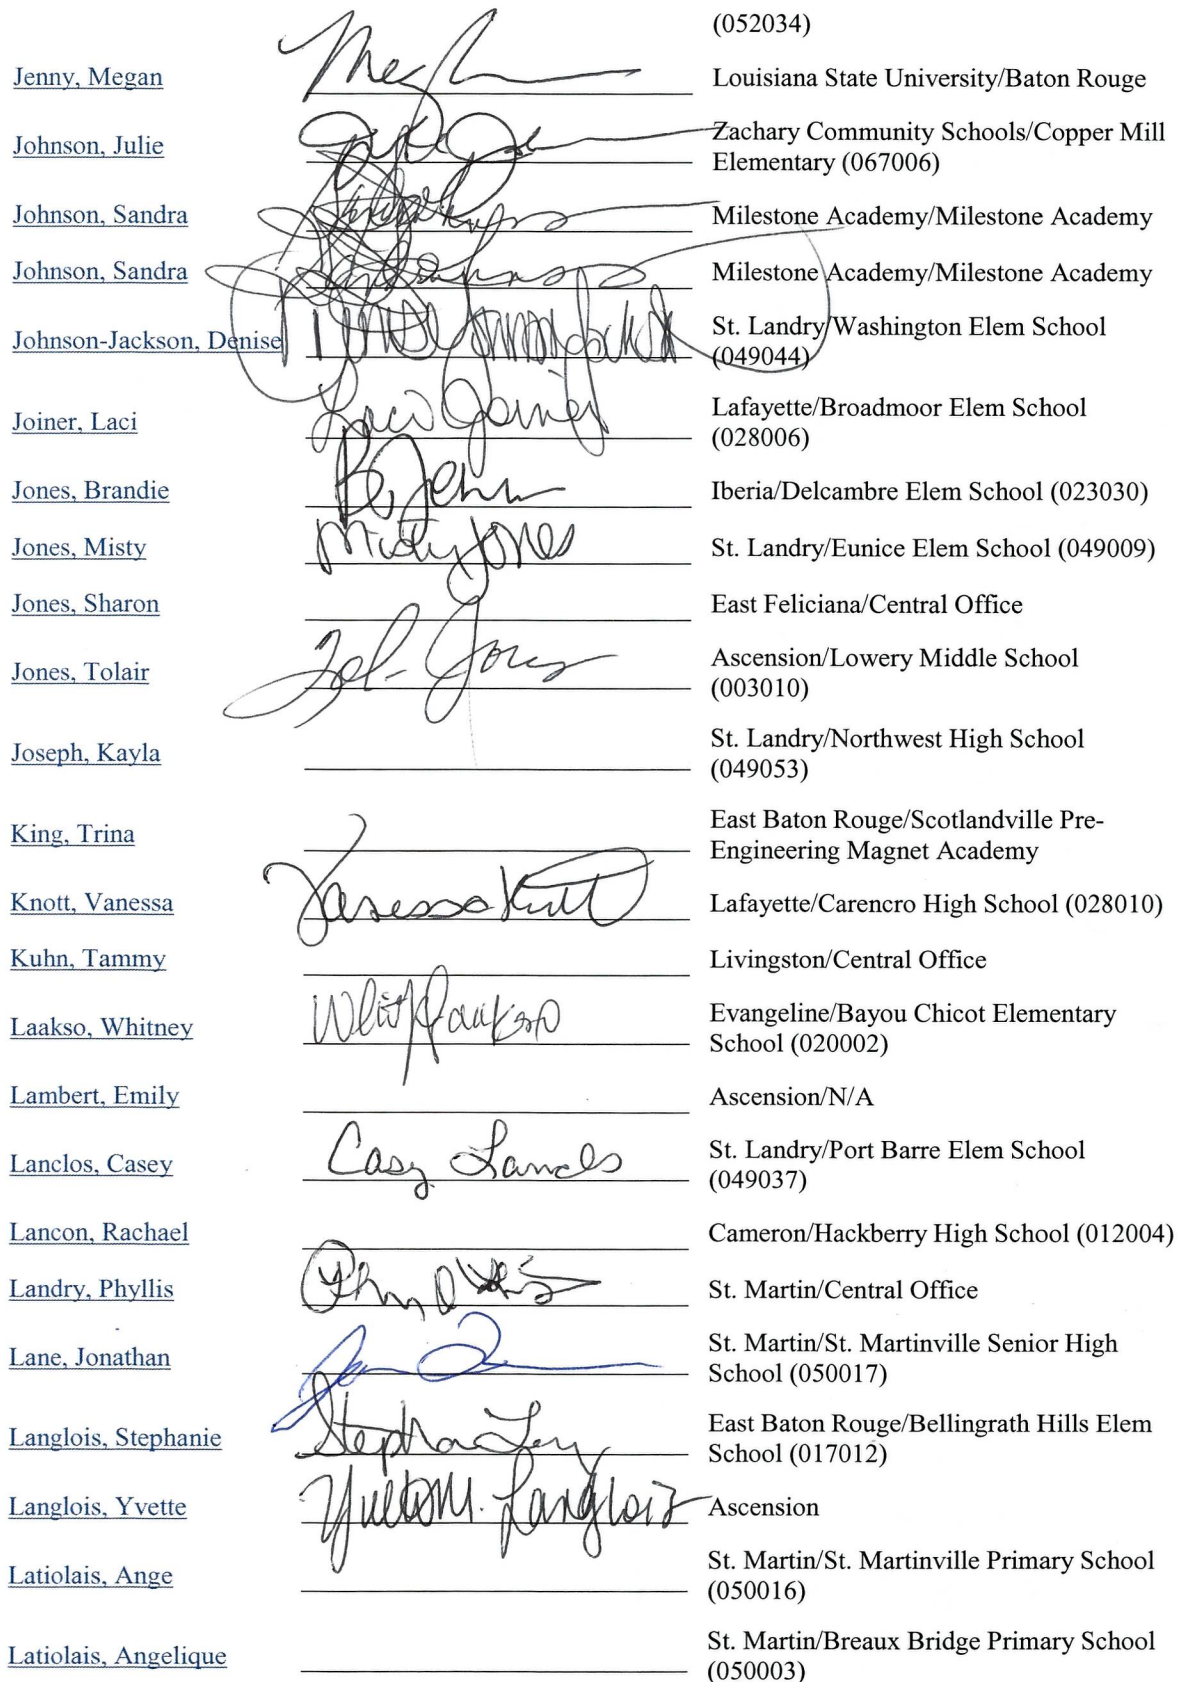 (052034)
Jenny, Megan Louisiana State University/Baton Rouge
Johnson, Julie Zachary Community Schools/Copper Mill
Elementary (067006)
Johnson, Sandra Milestone Academy/Milestone Academy
Johnson, Sandra Milestone Academy/Milestone Academy
Johnson-Jackson, Denise St. Landry/Washington Elem School
(049044)
Joiner, Laci Laci Joiner Lafayette/Broadmoor Elem School
(028006)
Jones, Brandie Iberia/Delcambre Elem School (023030)
Jones, Misty Misty Jones St. Landry/Eunice Elem School (049009)
Jones, Sharon East Feliciana/Central Office
Jones, Tolair Ascension/Lowery Middle School
(003010)
Joseph, Kayla St. Landry/Northwest High School
(049053)
King, Trina East Baton Rouge/Scotlandville Pre-
Engineering Magnet Academy
Knott, Vanessa Vanessa Knott Lafayette/Carencro High School (028010)
Kuhn, Tammy Livingston/Central Office
Laakso, Whitney Evangeline/Bayou Chicot Elementary
School (020002)
Lambert, Emily Ascension/N/A
Lanclos, Casey Casey Lanclos St. Landry/Port Barre Elem School
(049037)
Lancon, Rachael Cameron/Hackberry High School (012004)
Landry, Phyllis St. Martin/Central Office
Lane, Jonathan St. Martin/St. Martinville Senior High
School (050017)
Langlois, Stephanie East Baton Rouge/Bellingrath Hills Elem
School (017012)
Langlois, Yvette Yvette M. Langlois Ascension
Latiolais, Ange St. Martin/St. Martinville Primary School
(050016)
Latiolais, Angelique St. Martin/Breaux Bridge Primary School
(050003)